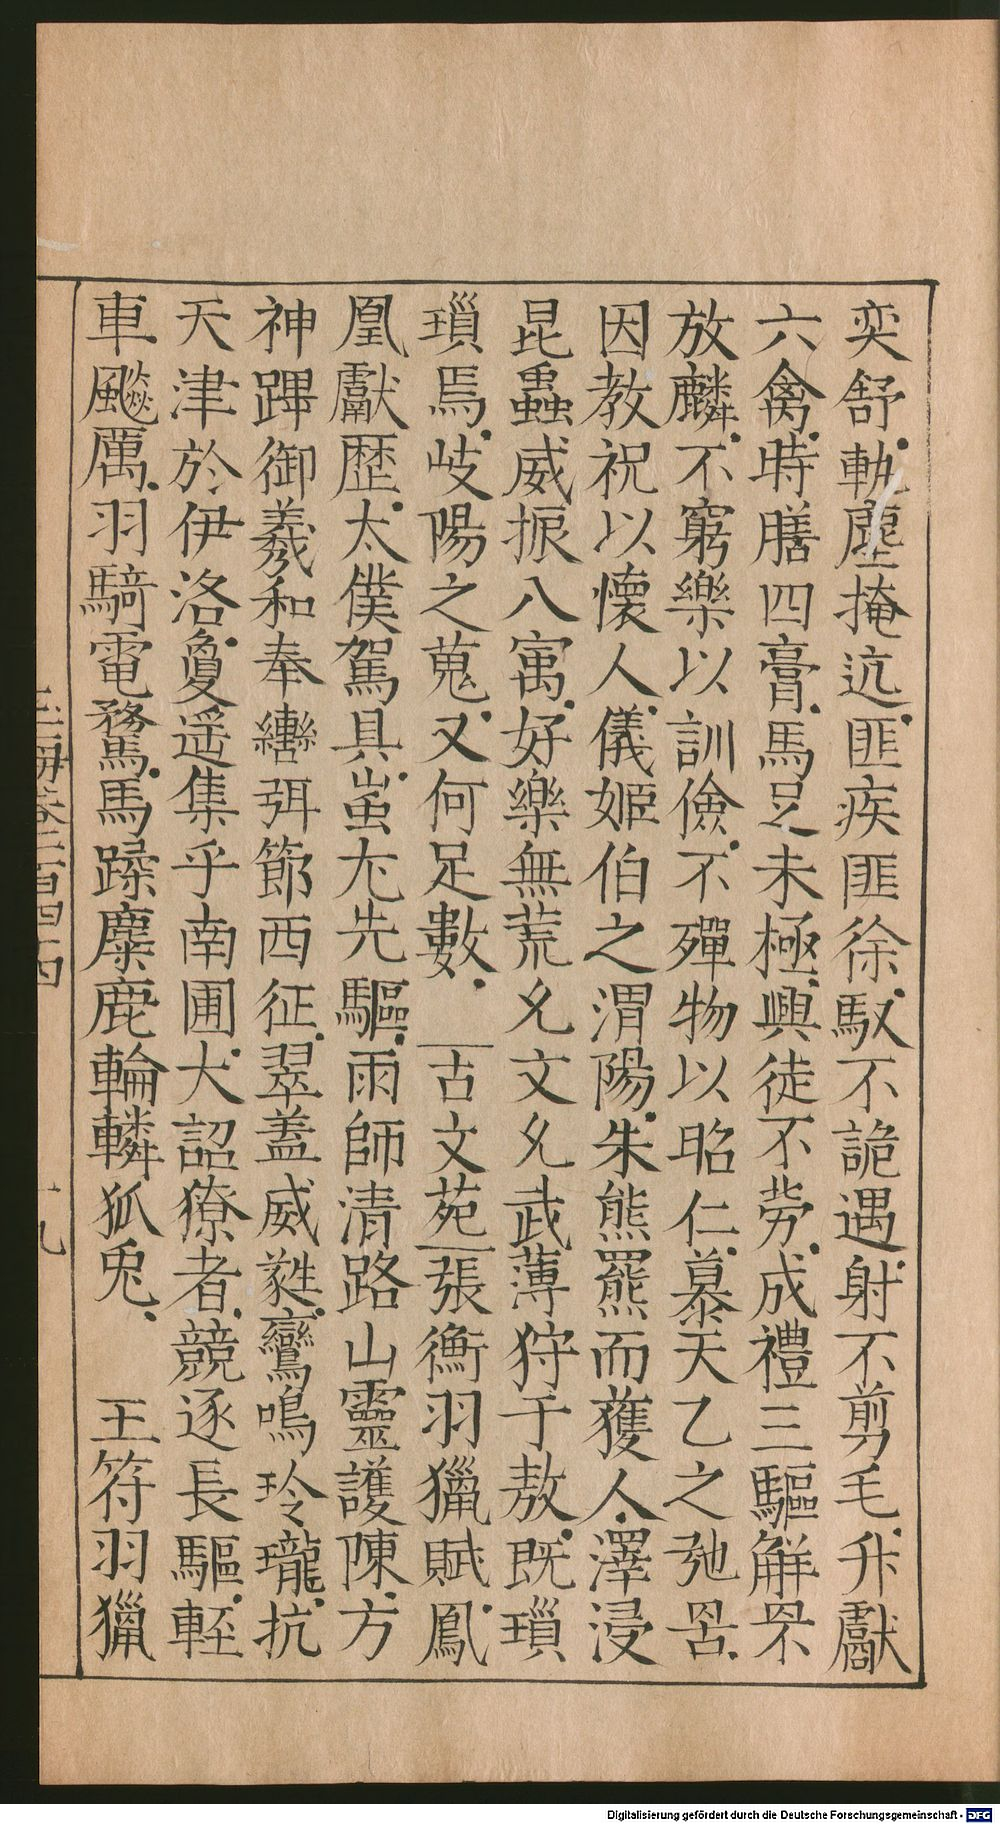 奕舒軌塵掩迒匪疾匪徐馭不詭遇射不剪毛升獻
六禽時膳四膏馬足未極輿徒不勞成禮三驅解罘
放麟不窮樂以訓儉不殫物以昭仁慕天乙之弛罟
因教祝以懷人儀姬伯之渭陽朱熊羆而獲人澤浸
昆蟲威振八㝢好樂無荒允文允武薄狩于敖既瑣
瑣焉岐陽之蒐又何足數 古文苑張衡羽獵賦鳳
凰獻歷太僕駕具蚩尤先驅雨師清路山靈護陳方
神蹕御羲和奉轡弭節西征翠蓋威蕤鸞鳴玲瓏抗
天津於伊洛敻遥集乎南圃大詔獠者競逐長驅輕
車飈厲羽騎電騖馬蹂麋鹿輪轔狐兎 王符羽獵
卷二百四四
十九
Digitalisierung gefördert durch die Deutsche Forschungsgemeinschaft - DFG